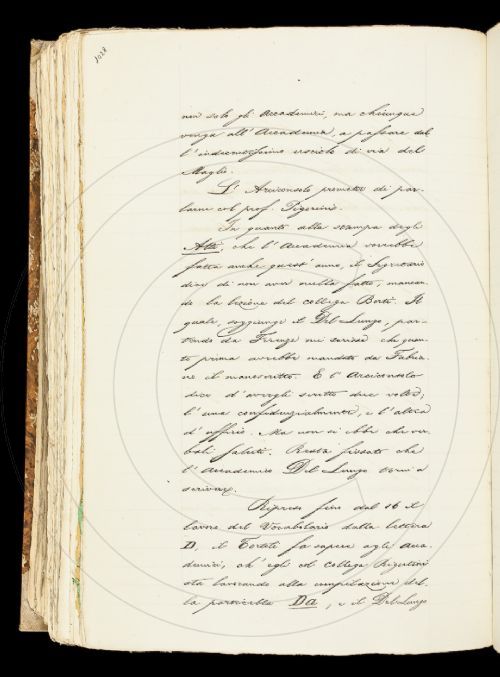 1028
non solo gli Accademici, ma chiunque
venga all'Accademia, a passare dal
l'indecentissimo uscio di via del
Maglio.
L'Arciconsolo promette di par-
larne col prof. Pigorini.
In quanto alla stampa degli
Atti, che l'Accademia vorrebbe
fatta anche quest'anno, il Segretario
dice di non aver nulla fatto, mancan-
do la lezione del collega Berti. Il
quale, soggiunge il Del Lungo, par-
tendo da Firenze mi scrisse che quan-
to prima avrebbe mandato da
il manoscritto. E l'Arciconsolo
dice d'avergli scritto due volte;
l'una confidenzialmente, e l'altra
d'ufficio. Ma non si ebbe che ver-
bali saluti. Resta fissato che
l'Accademico Del Lungo torni a
scrivere.
Ripreso fino dal 16 il
lavoro del Vocabolario dalla lettera
D, il Tortoli fa sapere agli Acca-
demici, ch'egli col collega Rigutini
sta lavorando alla compilazione del-
la particella Da, e il Del Lungo